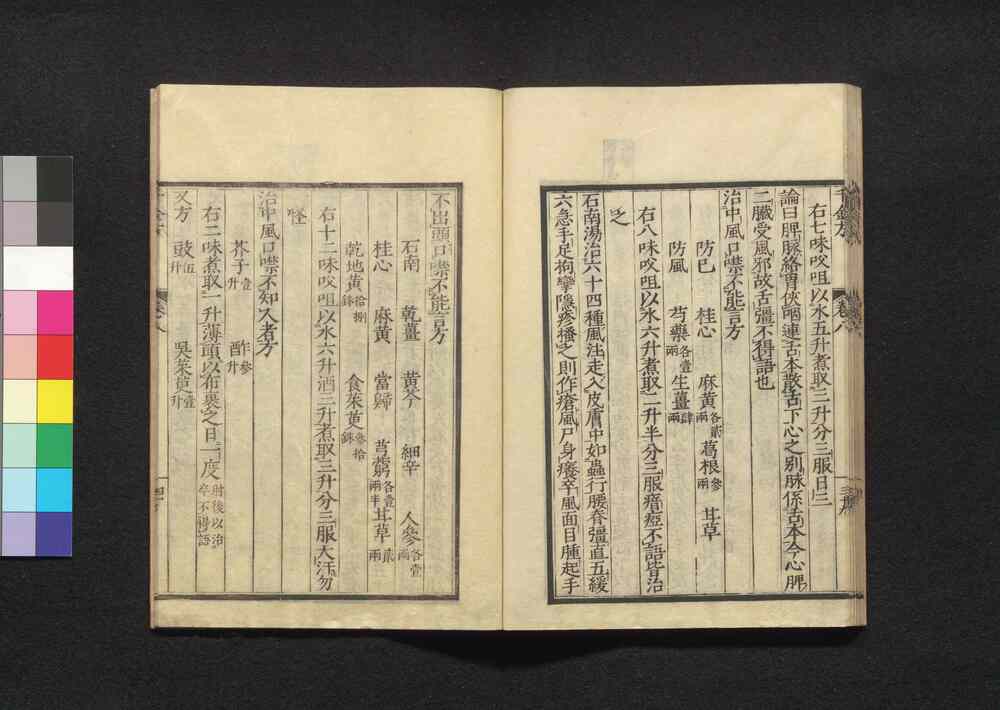 右七味㕮咀以水五升煮取三升分三服日三
論曰脾脉絡胃俠咽連舌本散舌下心之別脉係舌本今心脾
二臟受風邪故舌彊不得語也
治中風口噤不能言方
防已 桂心 麻黄各貳兩 葛根參兩 甘草
防風 芍藥各壹兩 生薑肆兩
右八味㕮咀以水六升煮取二升半分三服瘖瘂不語皆治
之
石南湯治六十四種風注走入皮膚中如蟲行腰脊彊直五緩
六急手足拘攣隱疹搔之則作瘡風尸身癢卒風面目腫起手
不出頭口噤不能言方
石南 乾薑 黄芩 細辛 人參各壹兩
桂心 麻黄 當歸 芎藭各壹兩半 甘草貳兩
乾地黄拾捌銖 食茱萸參拾銖
右十二味㕮咀以水六升酒三升煮取三升分三服大汗勿
怪
治中風口噤不知人者方
芥子壹升 酢參升
右二味煮取一升薄頭以布裹之日一度肘後以治卒不得語
又方 豉伍升 吳茱萸壹升
千金方
卷八